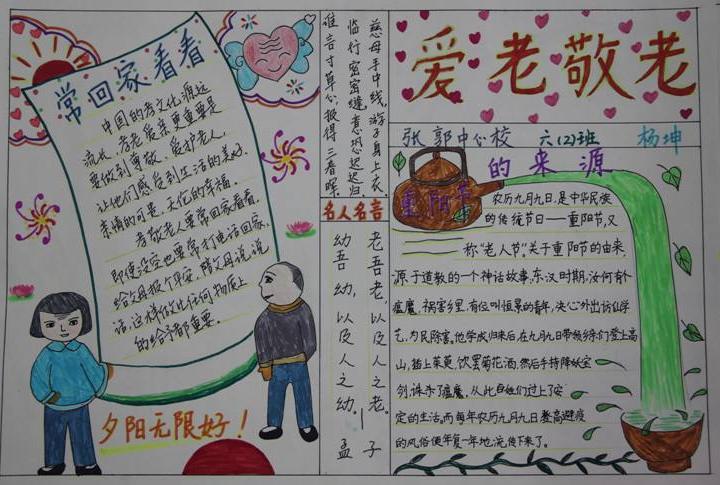 常回家看看
中国的孝文化源远
流长，孝老爱亲更重要是
要做到尊敬、爱护老人，
让他们感受到生活的美好、
亲情的可贵、天伦的幸福。
孝敬老人要常回家看看，
即使没空也要常打电话回家，
给父母报个平安，陪父母说说
话，这样做比任何物质上
的给予都重要。
夕阳无限好！
慈母手中线，游子身上衣。
临行密密缝，意恐迟迟归。
谁言寸草心，报得三春晖。
名人名言
老吾老，以及人之老。
幼吾幼，以及人之幼。
—孟子
爱老敬老
张郭中心校 六(2)班 杨坤
重阳节的来源
农历九月九日，是中华民族
的传统节日——重阳节，又
称“老人节”。关于重阳节的由来，
源于道教的一个神话故事：东汉时期，汝河有个
瘟魔，祸害乡里，有位叫恒景的青年，决心外出访仙学
艺，为民除害。他学成归来后，在九月九日带领乡亲们登上高
山，插上茱萸，饮罢菊花酒，然后手持降妖宝
剑，诛杀了瘟魔，从此百姓们过上了安
定的生活。而每年农历九月九日登高避疫
的风俗便年复一年地流传下来了。